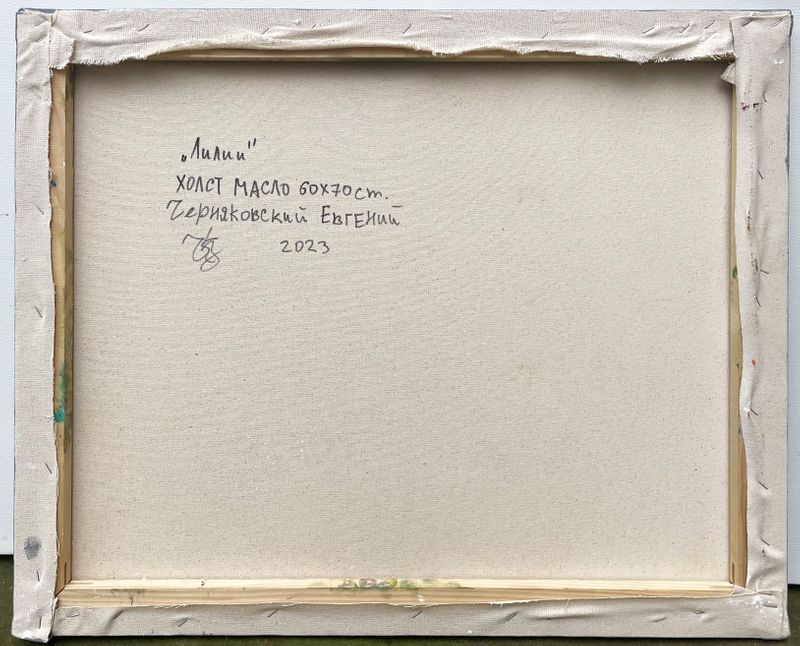 „Лилии"
ХОЛСТ МАСЛО 60х70ст.
Черняковский ЕВГЕНИЙ
2023